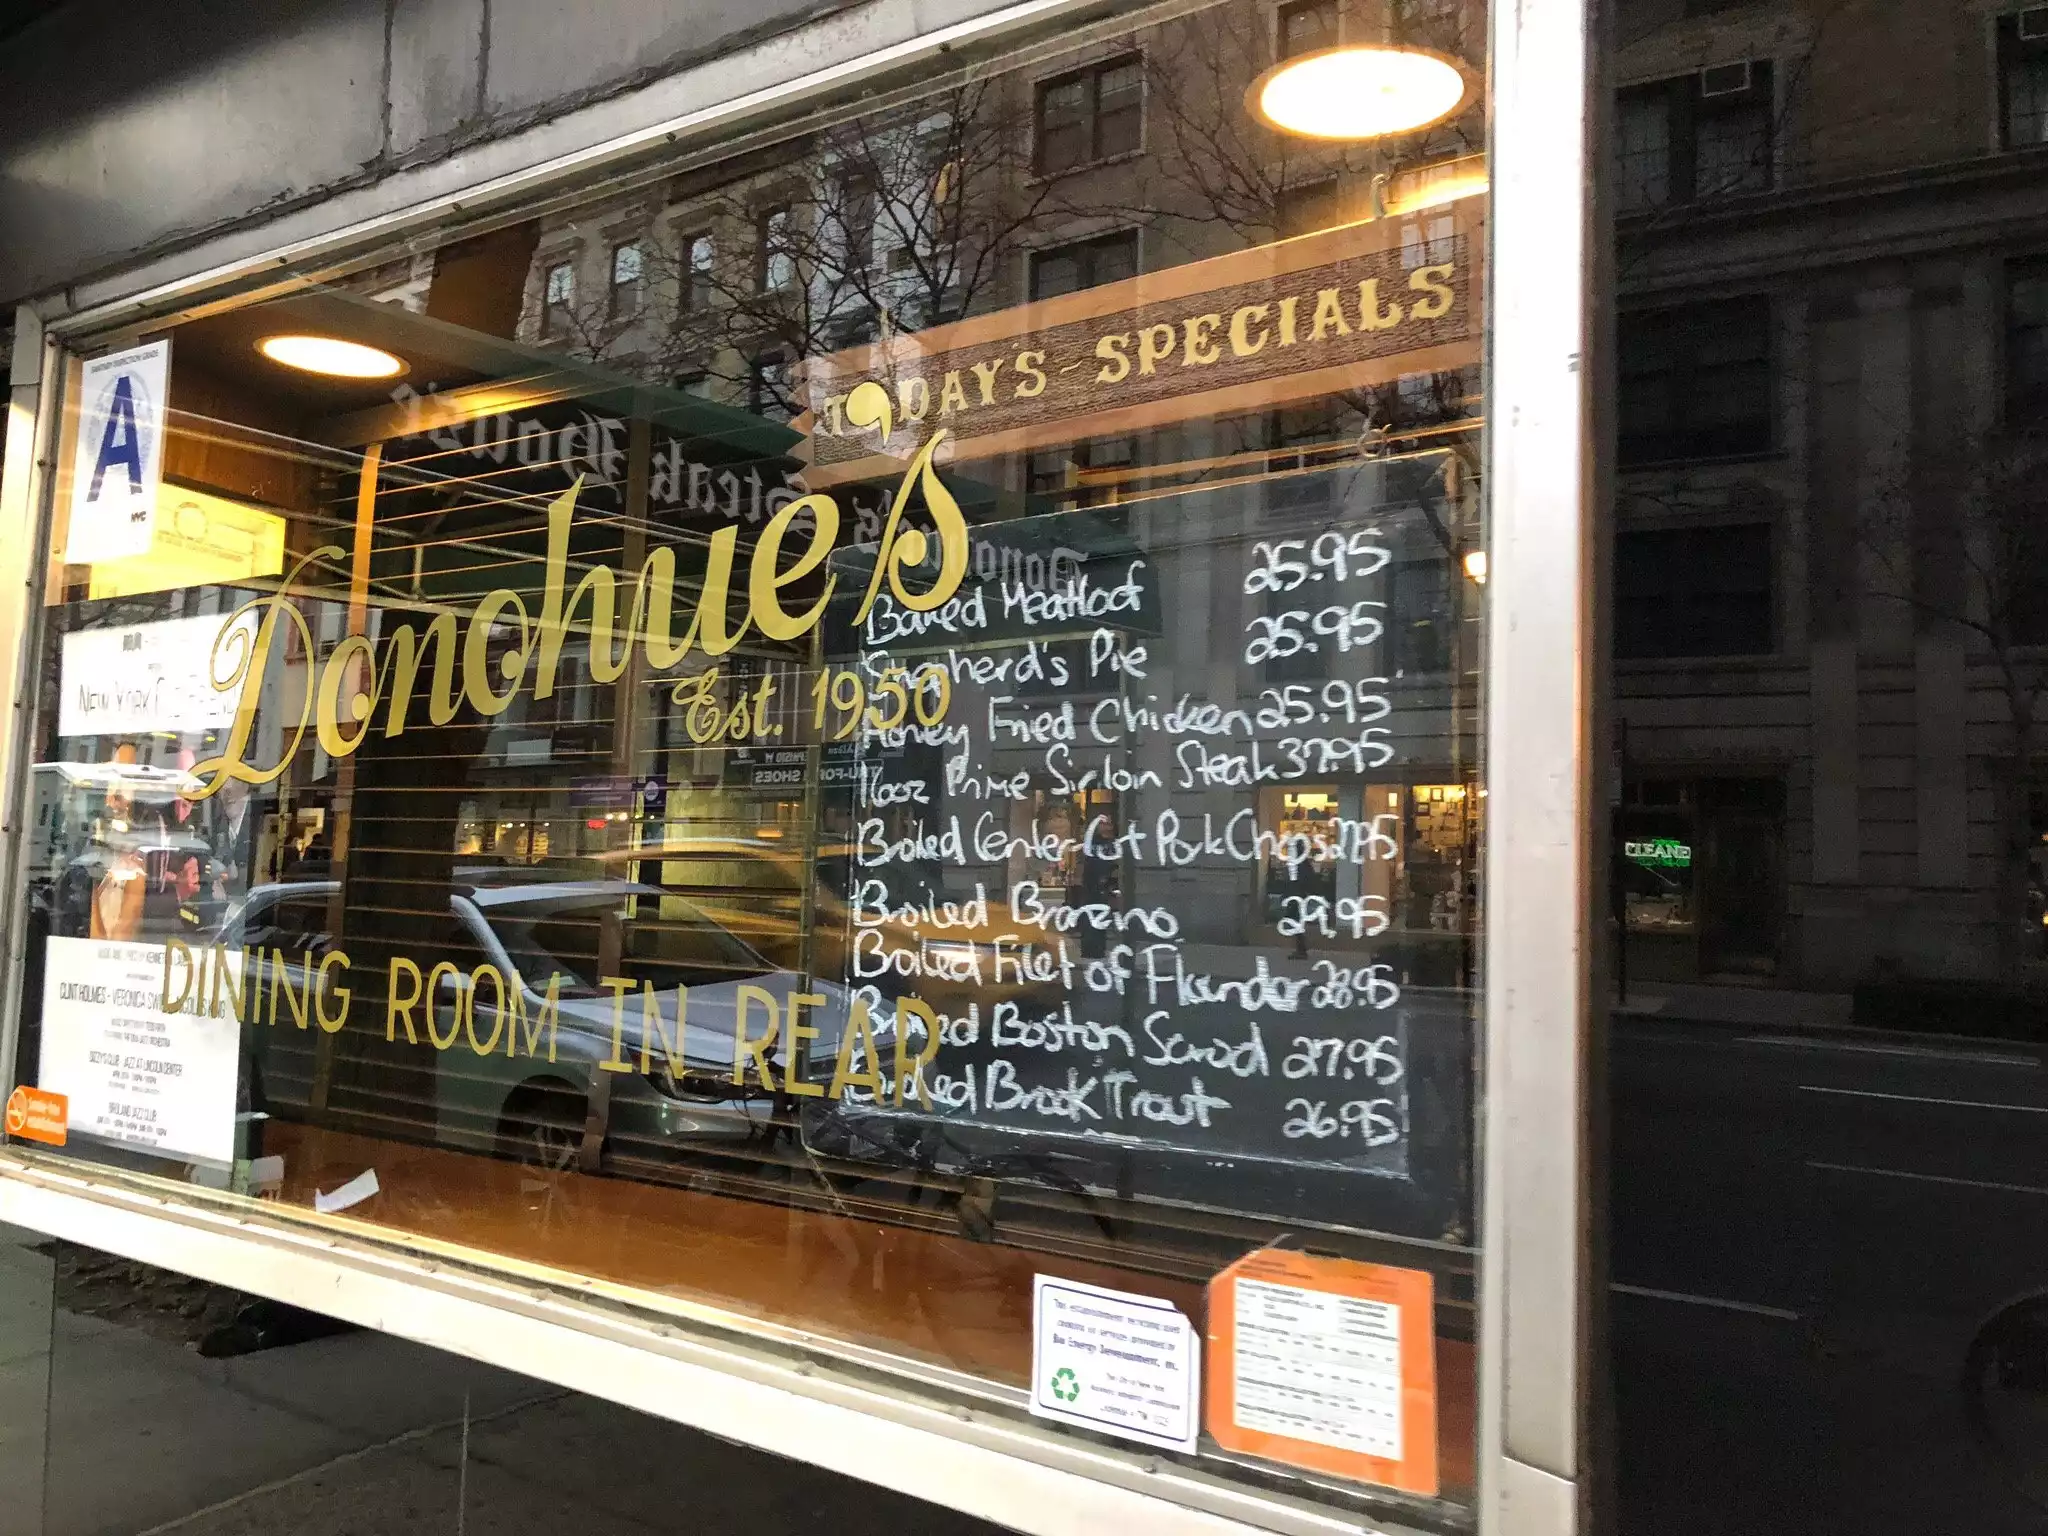 SANITARY INSPECTION GRADE
A
NYC
TODAY'S - SPECIALS
Donohue's Steak House
Donohue's
Est. 1950
DINING ROOM IN REAR
Baked Meatloaf 25.95
Shepherd's Pie 25.95
Honey Fried Chicken 25.95
16oz Prime Sirloin Steak 37.95
Broiled Center-Cut Pork Chops 27.95
Broiled Bronzino 29.95
Broiled Filet of Flounder 28.95
Broiled Boston Scrod 27.95
Broiled Brook Trout 26.95
NEW YORK
CLINT HOLMES - VERONICA
DIZZY'S CLUB - JAZZ AT LINCOLN CENTER
BIRDLAND JAZZ CLUB
SHOES
CLEANE
Bio Energy Development, Inc.